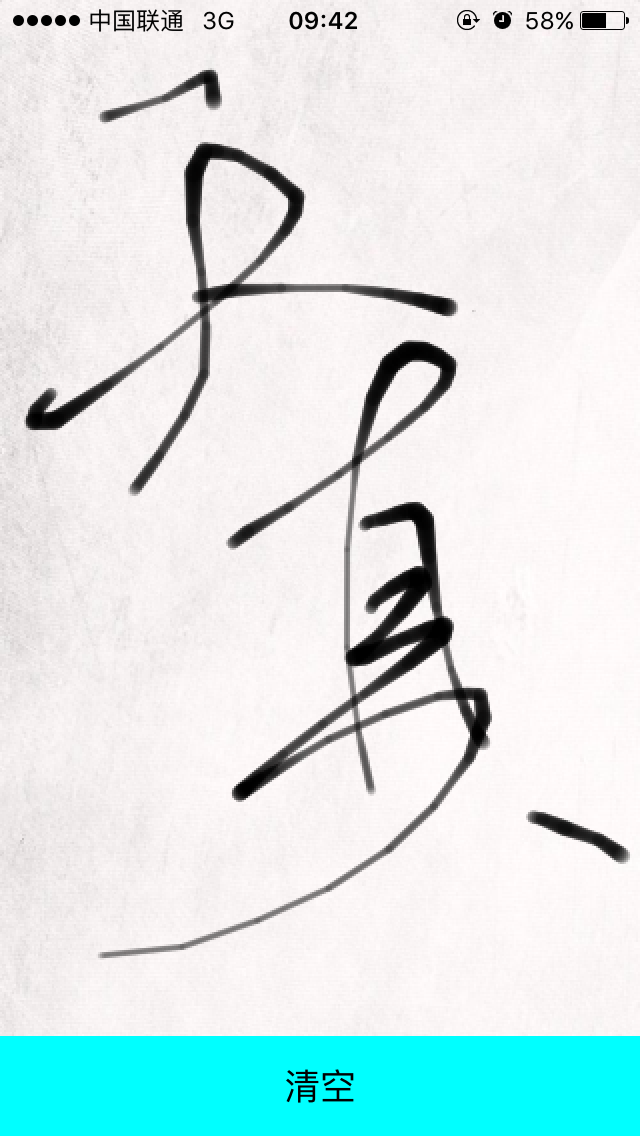 中国联通 3G 09:42 58%
天真
清空